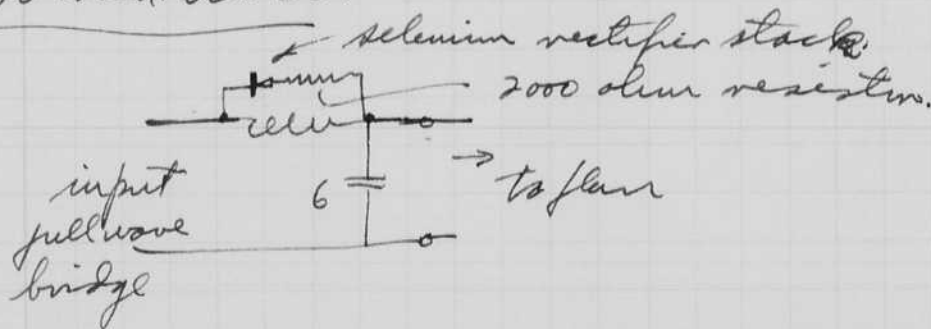 selenium rectifier stack.
2000 ohm resistor.
input
fullwave
bridge
6
→ to